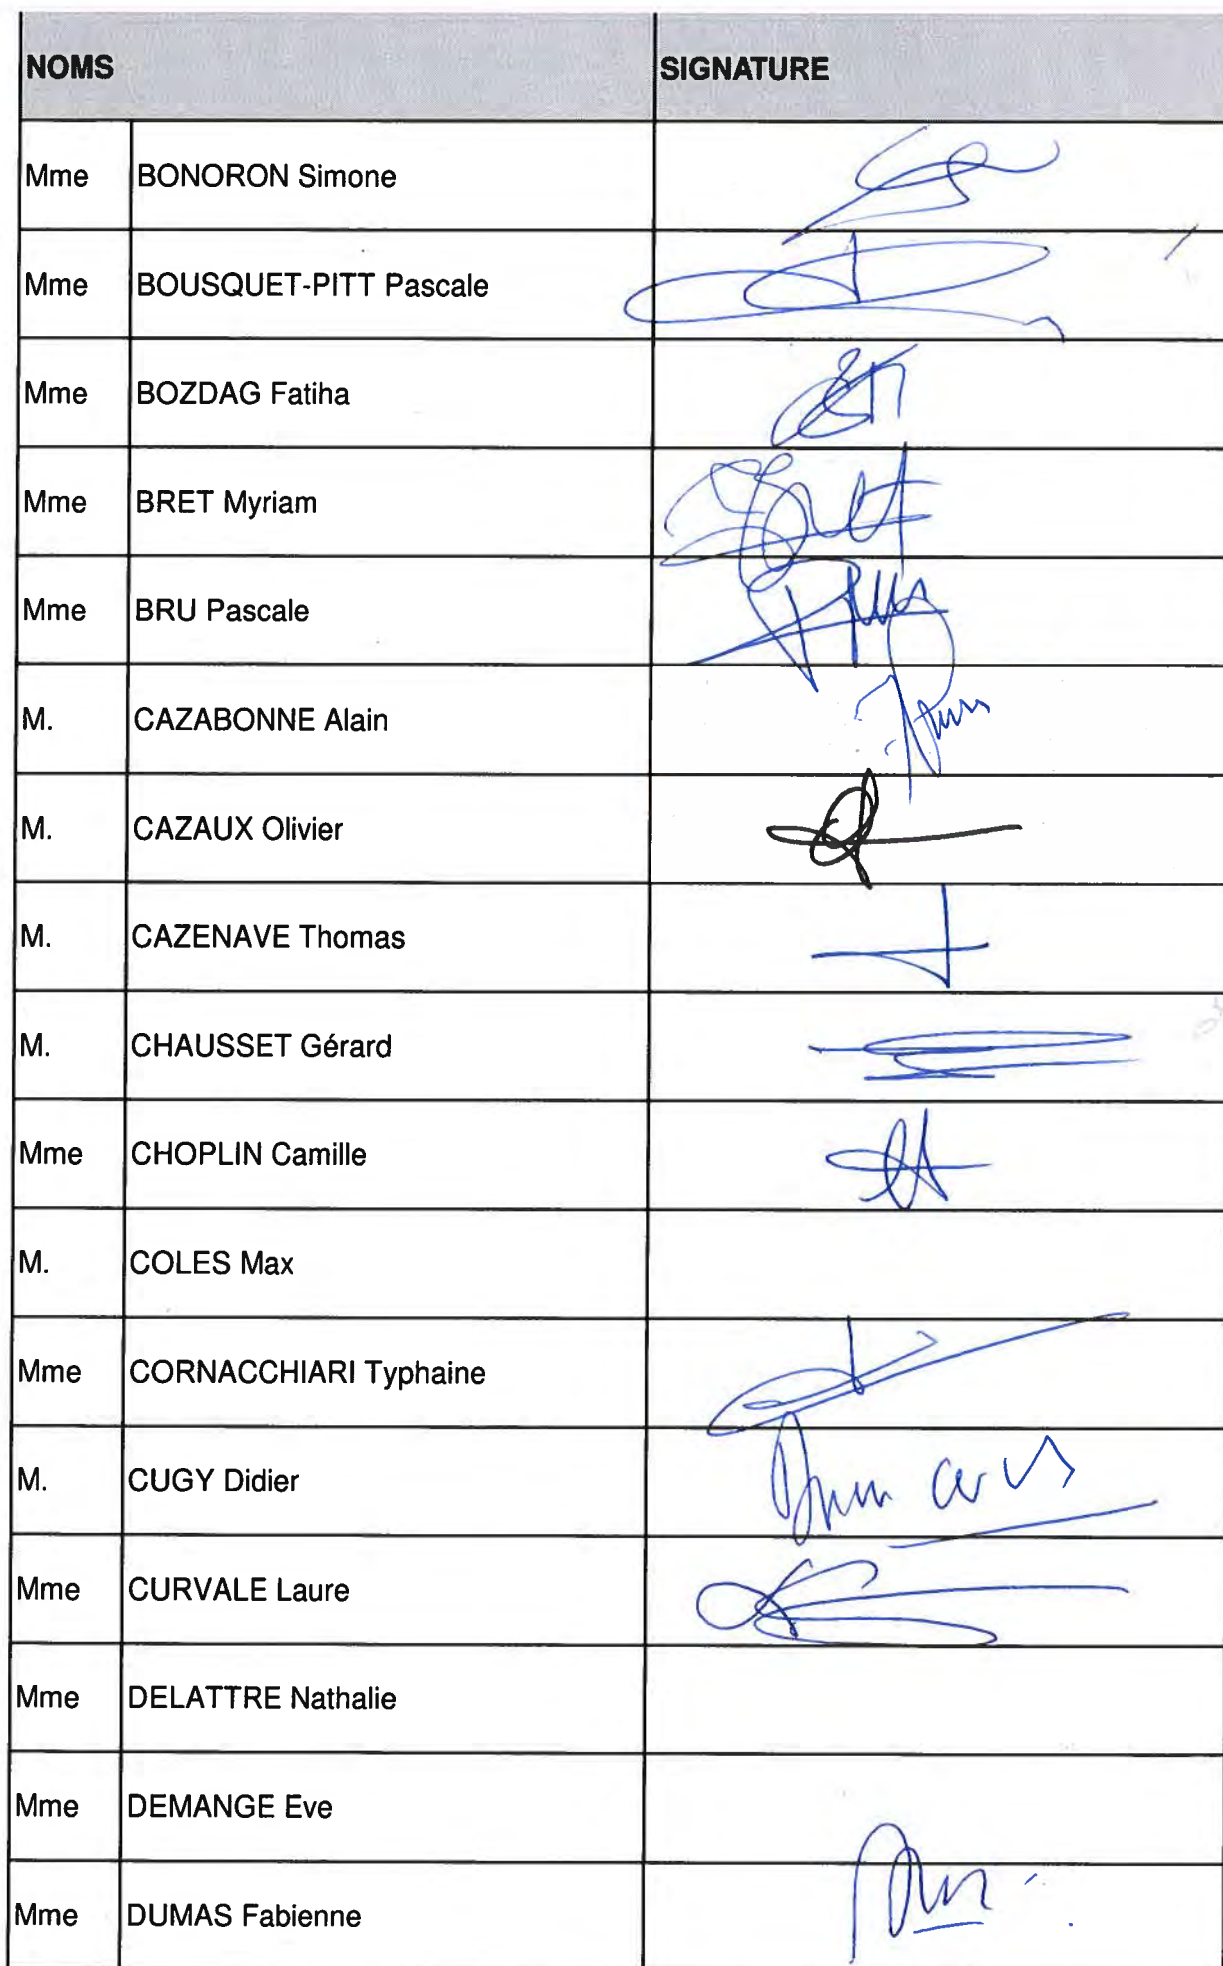 NOMS SIGNATURE
Mme BONORON Simone
Mme BOUSQUET-PITT Pascale
Mme BOZDAG Fatiha
Mme BRET Myriam
Mme BRU Pascale
M. CAZABONNE Alain
M. CAZAUX Olivier
M. CAZENAVE Thomas
M. CHAUSSET Gérard
Mme CHOPLIN Camille
M. COLES Max
Mme CORNACCHIARI Typhaine
M. CUGY Didier
Mme CURVALE Laure
Mme DELATTRE Nathalie
Mme DEMANGE Eve
Mme DUMAS Fabienne